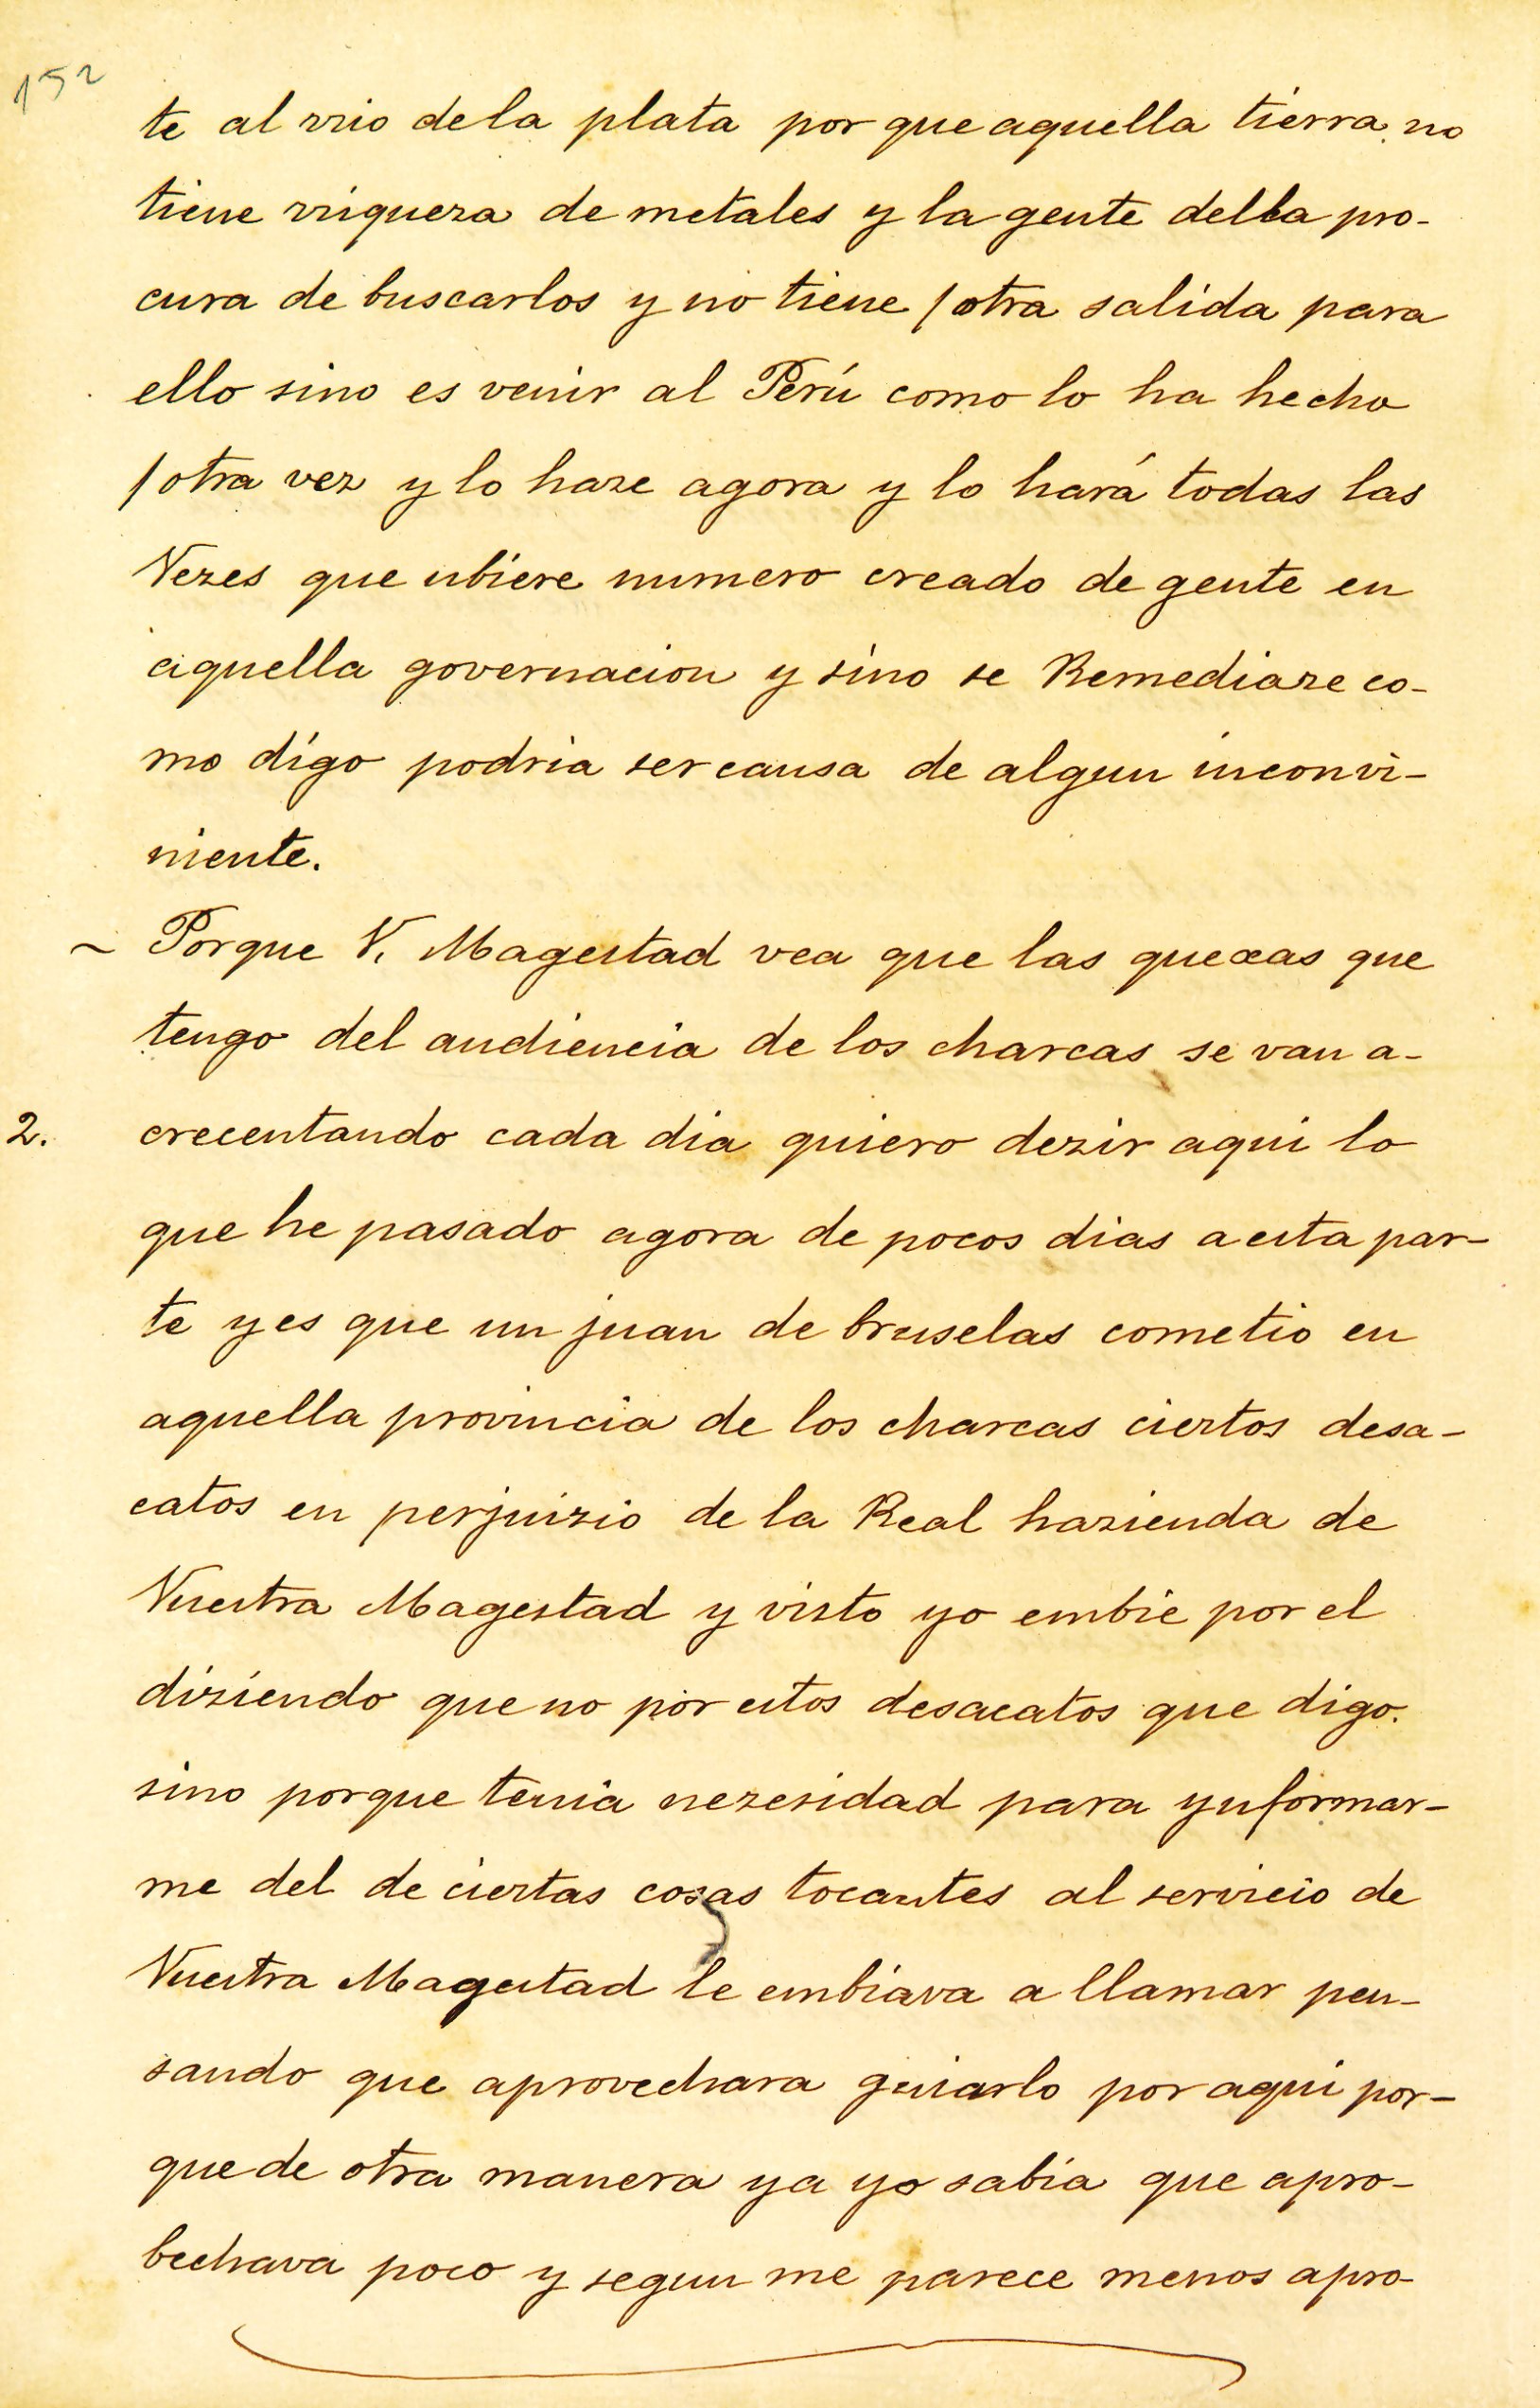 152
te al rrio dela plata por que aquella tierra no
tiene rriqueza de metales y la gente della pro-
cura de buscarlos y no tiene /otra salida para
ello sino es venir al Perú como lo ha hecho
/otra vez y lo haze agora y lo hará todas las
Vezes que ubiere numero creado de gente en
aquella governacion y sino se Remediaze co-
mo digo podria ser causa de algun inconvi-
niente.
~ Porque V. Magestad vea que las quexas que
tengo del audiencia de los charcas se van a-
2. crecentando cada dia quiero dezir aqui lo
que he pasado agora de pocos dias a esta par-
te y es que un juan de bruselas cometio en
aquella provincia de los charcas ciertos desa-
catos en perjuizio de la Real hazienda de
Vuestra Magestad y visto yo embie por el
diziendo que no por estos desacatos que digo.
sino porque tenia nezesidad para ynformar-
me del de ciertas cosas tocantes al servicio de
Vuestra Magestad le embiava a llamar pen-
sando que aprovechara guiarlo por aqui por-
que de otra manera ya yo sabia que apro-
bechava poco y segun me parece menos apro-